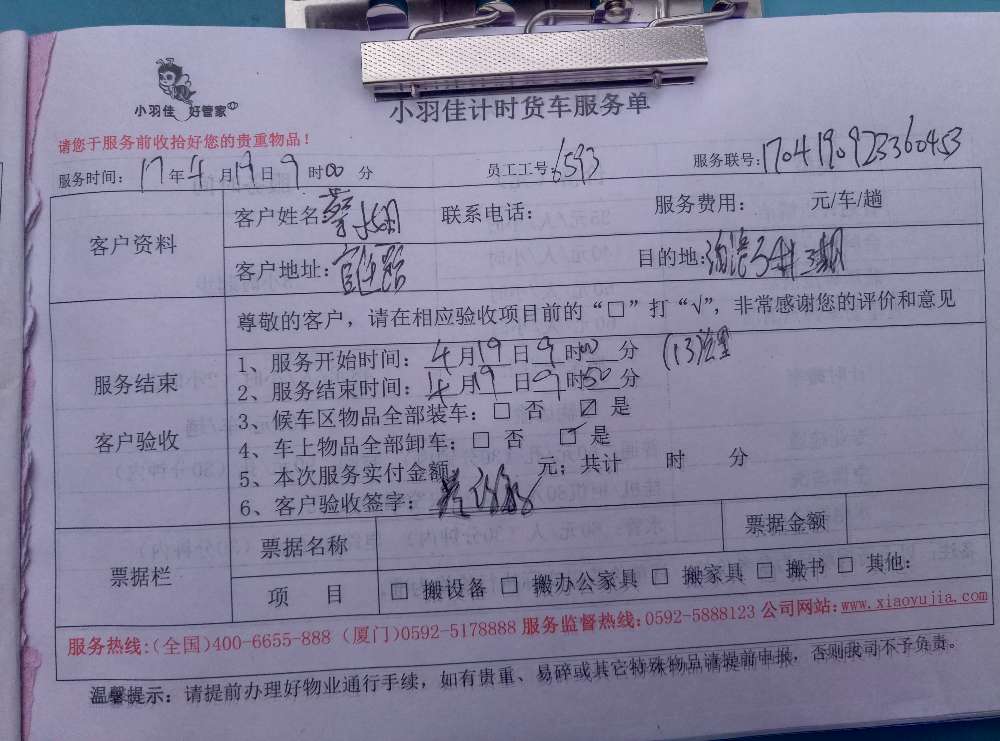 小羽佳 好管家
小羽佳计时货车服务单
请您于服务前收拾好您的贵重物品！
服务时间：17年4月19日9时00分 员工工号6593 服务联号：170419092336​0453
客户资料
客户姓名 联系电话： 服务费用： 元/车/趟
客户地址： 目的地：
服务结束
客户验收
尊敬的客户，请在相应验收项目前的“□”打“√”，非常感谢您的评价和意见
1、服务开始时间：4月19日9时00分 (13)公里
2、服务结束时间：4月19日9时50分
3、候车区物品全部装车：□ 否 ☑ 是
4、车上物品全部卸车：□ 否 ☑ 是
5、本次服务实付金额 元；共计 时 分
6、客户验收签字：
票据栏
票据名称 票据金额
项 目 □ 搬设备 □ 搬办公家具 □ 搬家具 □ 搬书 □ 其他：
服务热线：(全国)400-6655-888 (厦门)0592-5178888 服务监督热线：0592-5888123 公司网站：www.xiaoyujia.com
温馨提示：请提前办理好物业通行手续，如有贵重、易碎或其它特殊物品请提前申报，否则我司不予负责。